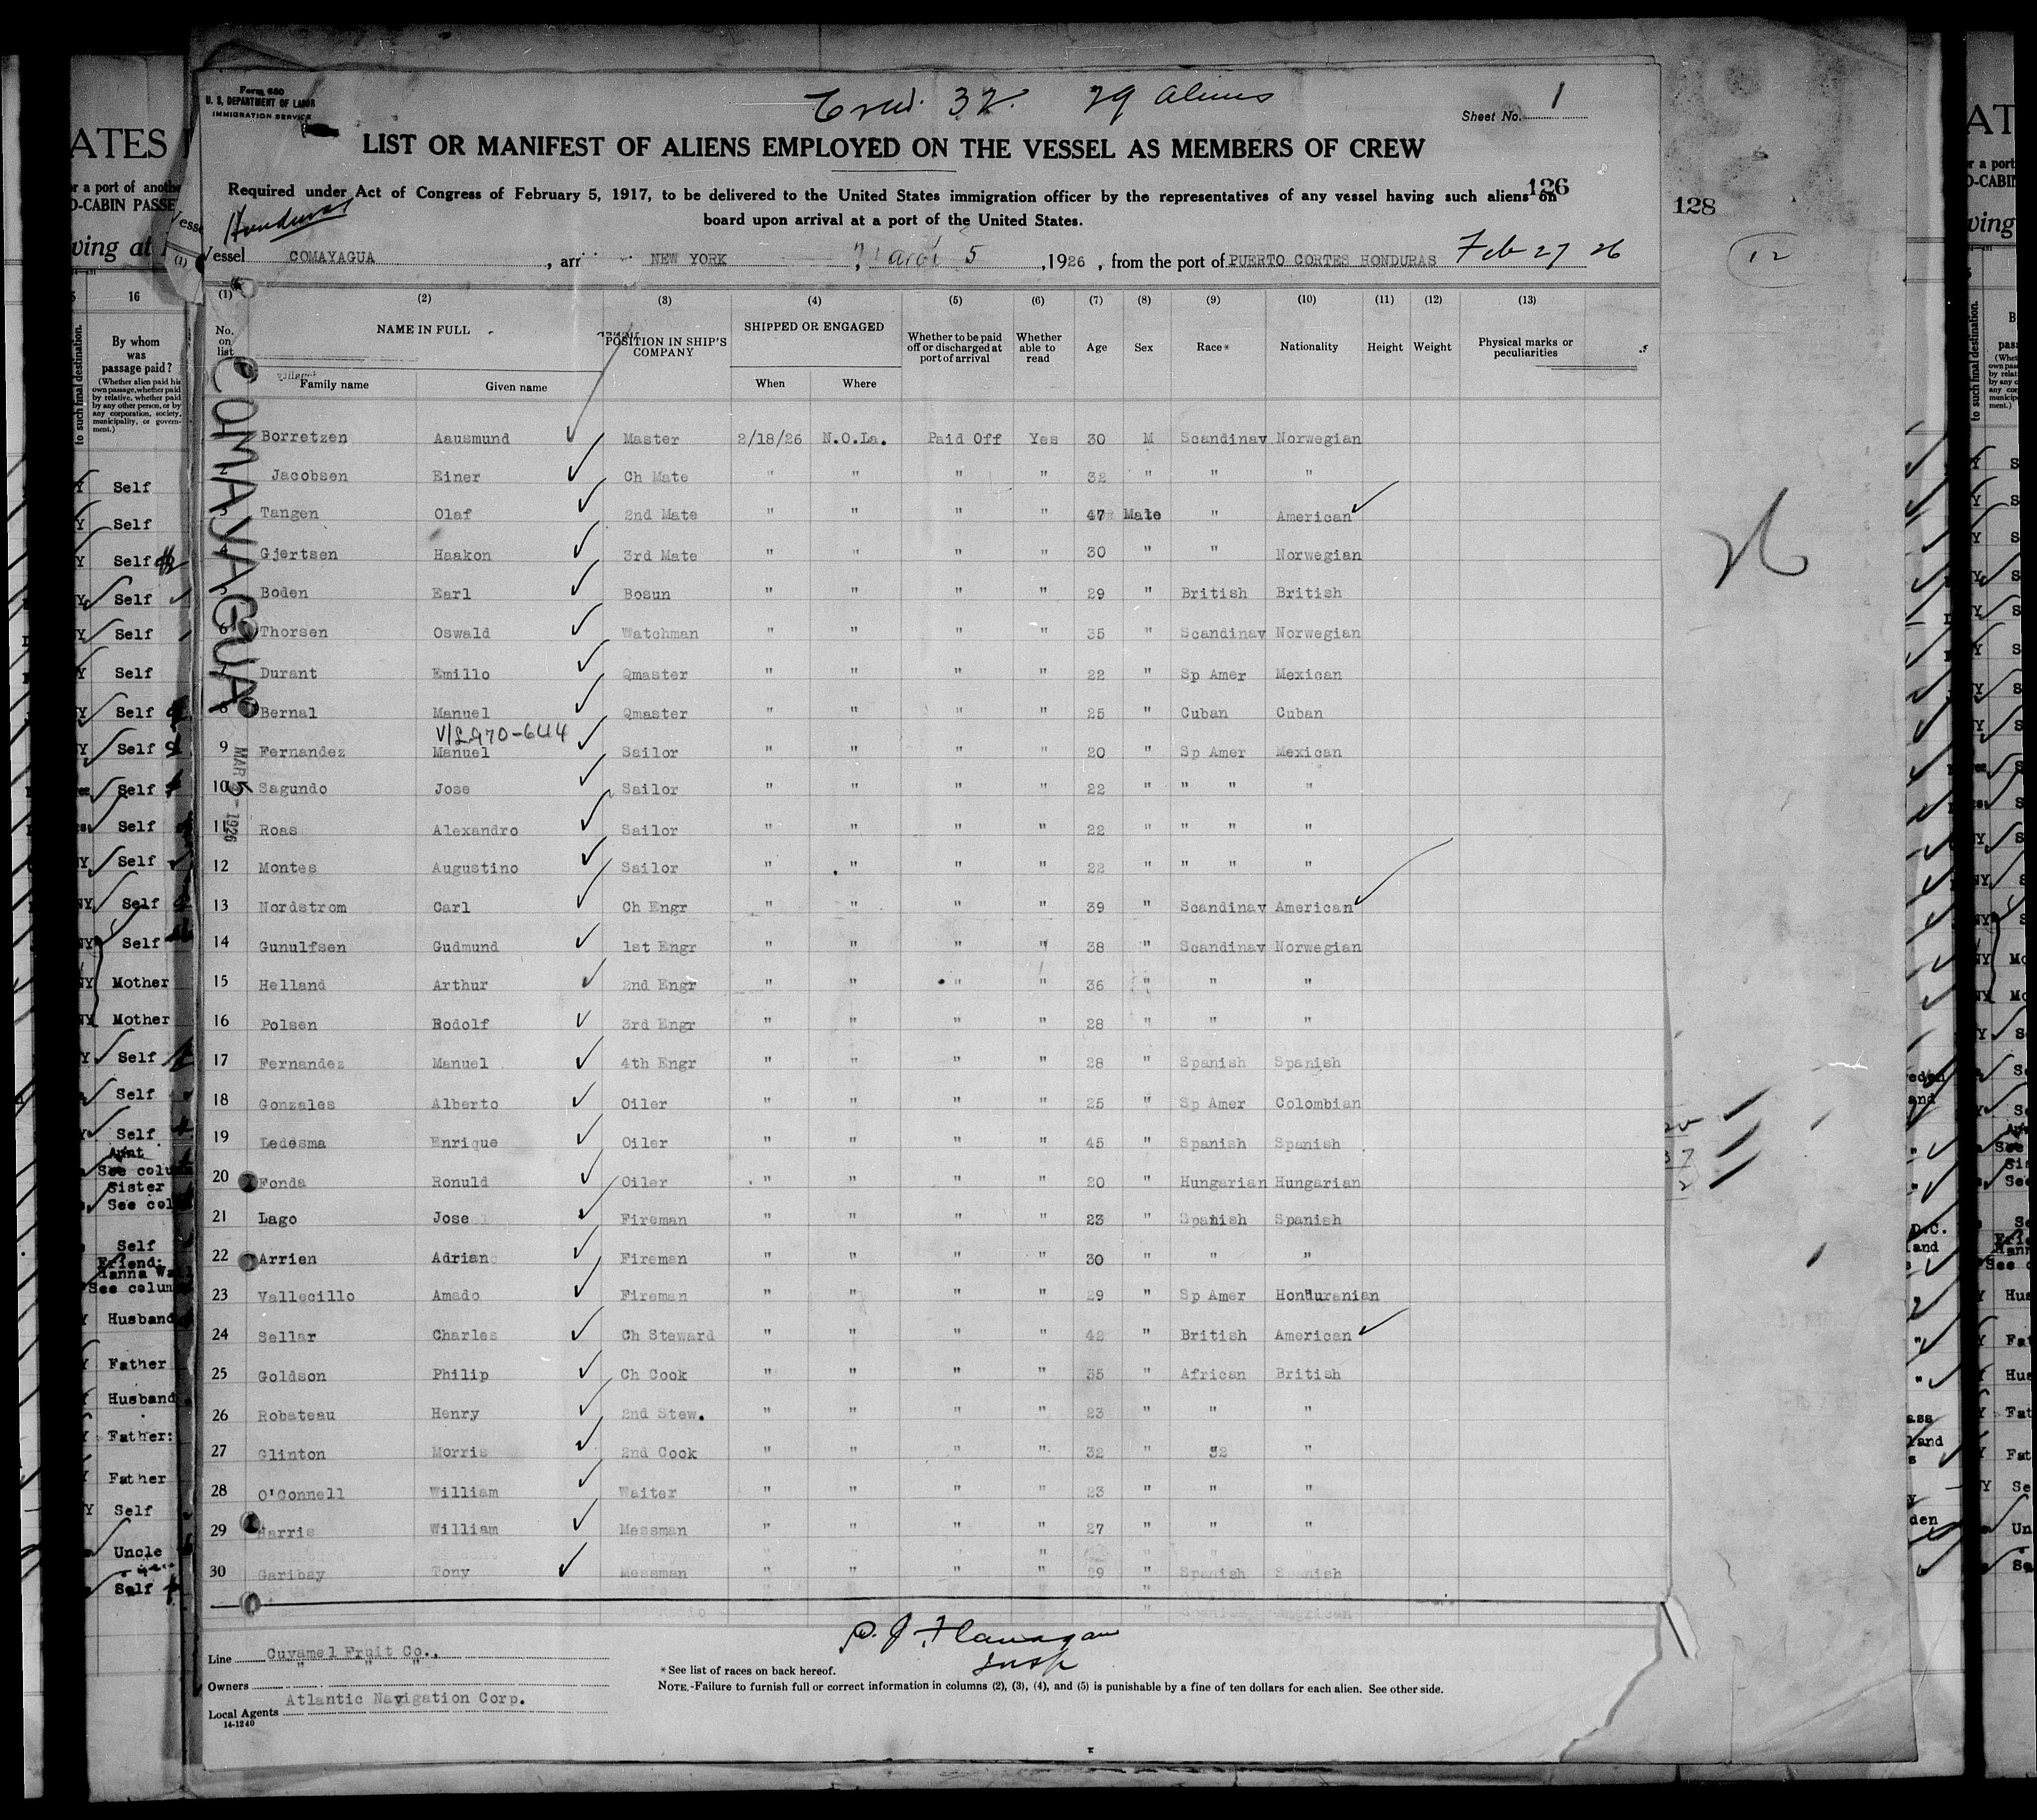 Form 680
U. S. DEPARTMENT OF LABOR
IMMIGRATION SERVICE
Crew. 32. 29 aliens
Sheet No. 1
LIST OR MANIFEST OF ALIENS EMPLOYED ON THE VESSEL AS MEMBERS OF CREW
Required under Act of Congress of February 5, 1917, to be delivered to the United States immigration officer by the representatives of any vessel having such aliens on
board upon arrival at a port of the United States.
126
128
12
Honduras
Vessel COMAYAGUA, arr NEW YORK, March 5, 1926, from the port of PUERTO CORTES HONDURAS Feb 27 26
(1) (2) (3) (4) (5) (6) (7) (8) (9) (10) (11) (12) (13)
No. on list NAME IN FULL Family name Given name POSITION IN SHIP'S COMPANY SHIPPED OR ENGAGED When Where Whether to be paid off or discharged at port of arrival Whether able to read Age Sex Race* Nationality Height Weight Physical marks or peculiarities
COMAYAGUA
MAR 5 - 1926
Borretzen Aausmund Master 2/18/26 N.O.La. Paid Off Yes 30 M Scandinav Norwegian
2 Jacobsen Einer Ch Mate " " " " 32 " " "
3 Tangen Olaf 2nd Mate " " " " 47 Male " American
4 Gjertsen Haakon 3rd Mate " " " " 30 " " Norwegian
5 Boden Earl Bosun " " " " 29 " British British
6 Thorsen Oswald Watchman " " " " 35 " Scandinav Norwegian
Durant Emillo Qmaster " " " " 22 " Sp Amer Mexican
8 Bernal Manuel Qmaster " " " " 25 " Cuban Cuban
9 Fernandez Manuel Sailor " " " " 20 " Sp Amer Mexican
10 Sagundo Jose Sailor " " " " 22 " " " "
11 Roas Alexandro Sailor " " " " 22 " " " "
12 Montes Augustino Sailor " " " " 22 " " " "
13 Nordstrom Carl Ch Engr " " " " 39 " Scandinav American
14 Gunulfsen Gudmund 1st Engr " " " " 38 " Scandinav Norwegian
15 Helland Arthur 2nd Engr " " " " 36 " " "
16 Polsen Rodolf 3rd Engr " " " " 28 " " "
17 Fernandez Manuel 4th Engr " " " " 28 " Spanish Spanish
18 Gonzales Alberto Oiler " " " " 25 " Sp Amer Colombian
19 Ledesma Enrique Oiler " " " " 45 " Spanish Spanish
20 Fonda Ronuld Oiler " " " " 20 " Hungarian Hungarian
21 Lago Jose Fireman " " " " 23 " Spanish Spanish
22 Arrien Adrian Fireman " " " " 30 " " "
23 Vallecillo Amado Fireman " " " " 29 " Sp Amer Honduranian
24 Sellar Charles Ch Steward " " " " 42 " British American
25 Goldson Philip Ch Cook " " " " 35 " African British
26 Robateau Henry 2nd Stew. " " " " 23 " " "
27 Glinton Morris 2nd Cook " " " " 32 " 32 "
28 O'Connell William Waiter " " " " 23 " " "
29 Harris William Messman " " " " 27 " " "
30 Garibay Tony Messman " " " " 29 " Spanish Spanish
26
P. J. Flanagan
Insp
Line Cuyamel Fruit Co.,
Owners " " "
Local Agents Atlantic Navigation Corp.
14-1240
*See list of races on back hereof.
NOTE.-Failure to furnish full or correct information in columns (2), (3), (4), and (5) is punishable by a fine of ten dollars for each alien. See other side.
ATES
r a port of anothe
O-CABIN PASSE
ving at
16
to such final destination.
By whom was passage paid?
(Whether alien paid his own passage, whether paid by relative, whether paid by any other person, or by any corporation, society, municipality, or government.)
Self
Self
Self
Self
Self
Self
Self
Self
Self
Self
Self
Self
Self
Mother
Mother
Self
Self
Self
Aunt
See colu
Sister
See col
Self
Friend:
Hanna Wa
See colum
Husband
Father
Husband
Father:
Father
Self
Uncle
Self